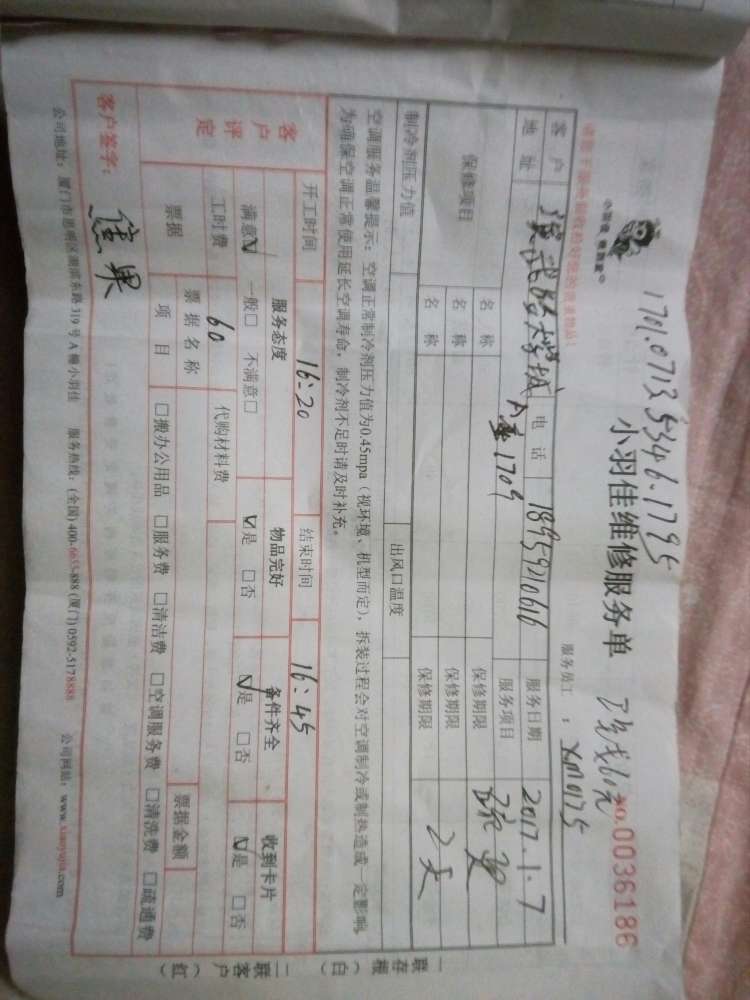 1701.0713 5346.1795
小羽佳 家政
小羽佳维修服务单
NO.0036186
服务员工：XM0175
客户
电话 18959210616
服务日期 2017.1.7
地址
A座1709
服务项目 疏通
保修项目
名称
保修期限 2天
名称
保修期限
名称
保修期限
制冷剂压力值
出风口温度
空调服务温馨提示：空调正常制冷剂压力值为0.45mpa（视环境、机型而定），拆装过程会对空调制冷或制热造成一定影响，
为确保空调正常使用延长空调寿命，制冷剂不足时请及时补充。
开工时间 16:20
结束时间 16:45
客户评定
服务态度
物品完好
备件齐全
收到卡片
满意☑ 一般□ 不满意□
☑是 □否
☑是 □否
☑是 □否
工时费 60
代购材料费
票据
票据名称
票据金额
项目
□搬办公用品 □服务费 □清洁费 □空调服务费 □清洗费 □疏通费
客户签字：
公司地址：厦门市思明区湖滨东路319号A幢小羽佳 服务热线：(全国) 400-6655-888 (厦门) 0592-5178888 公司网站：www.xiaoyujia.com
一联存根（白）
二联客户（红）